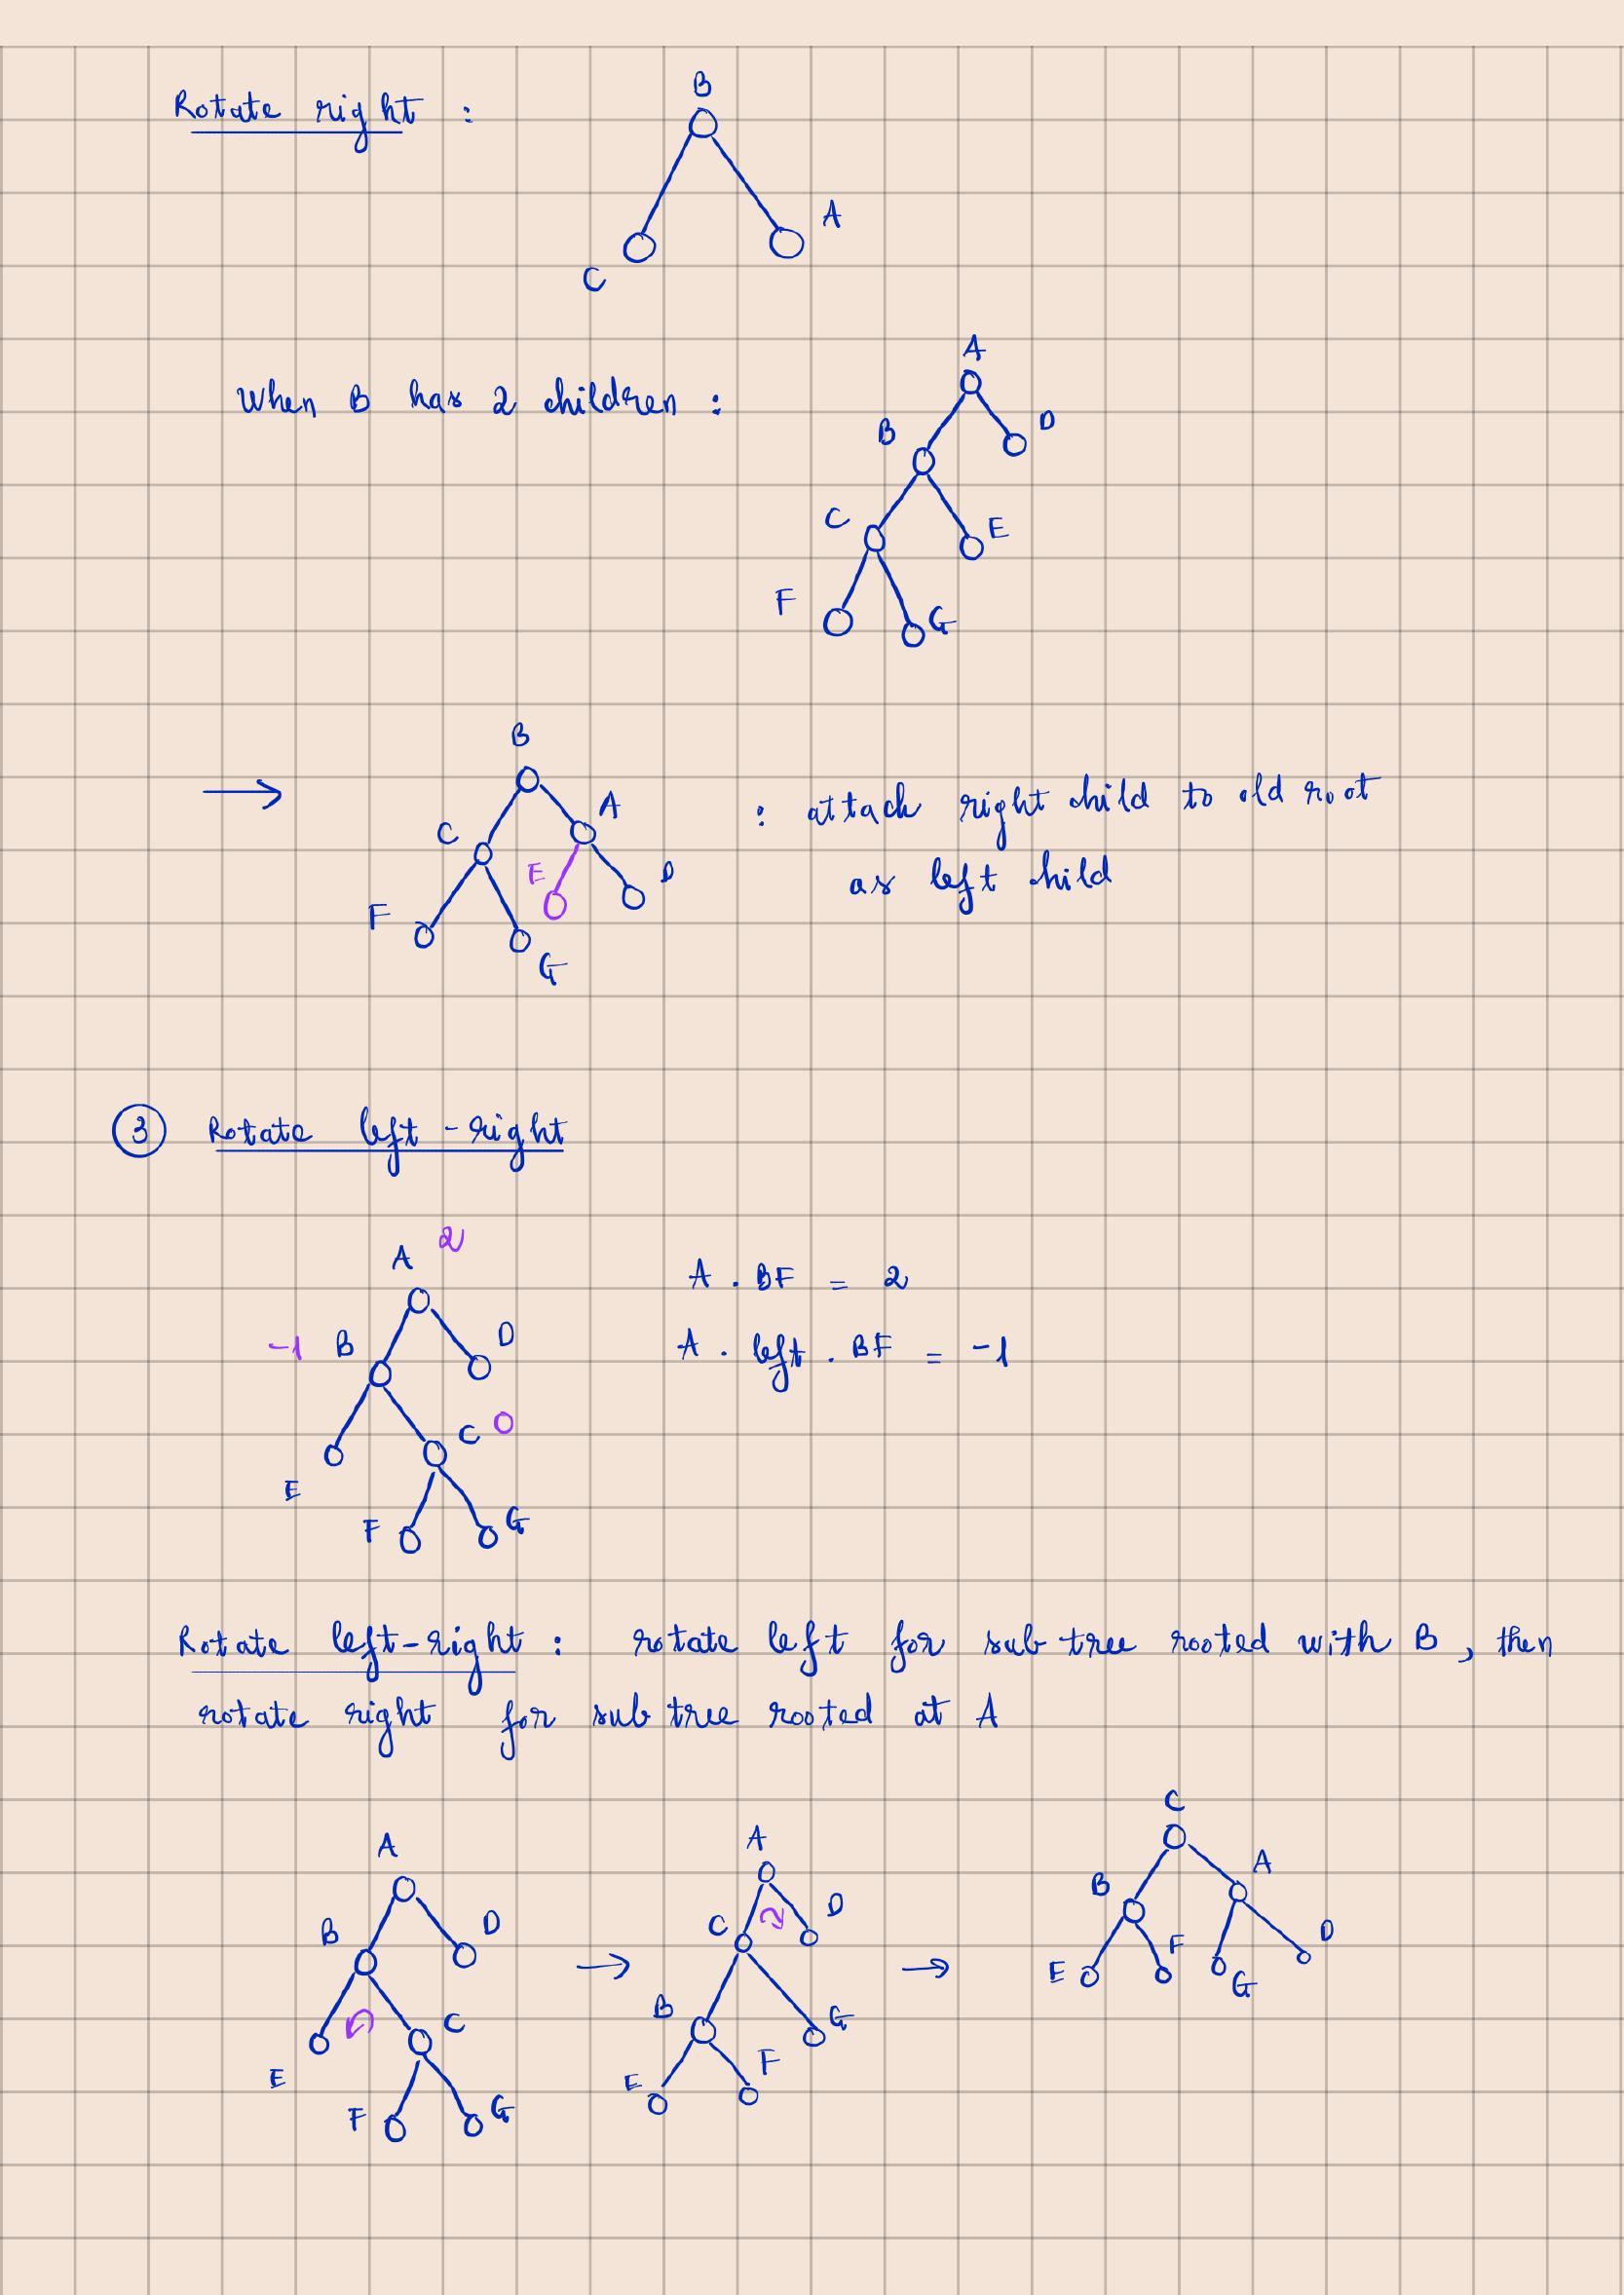 Rotate right :
B
A
C
When B has 2 children :
A
B
D
C
E
F
G
B
C
A
E
D
F
G
: attach right child to old root
as left child
3 Rotate left-right
A 2
-1 B
D
C 0
E
F
G
A . BF = 2
A . left . BF = -1
Rotate left-right : rotate left for sub tree rooted with B , then
rotate right for sub tree rooted at A
A
B
D
C
E
F
G
A
C
D
B
G
E
F
C
B
A
E
F
G
D